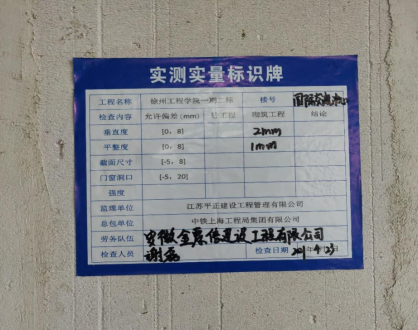 实测实量标识牌
工程名称 徐州工程学院一期二标 楼号 国际交流中心
检查内容 允许偏差(mm) 砼工程 砌筑工程 结论
垂直度 [0，8] 2mm
平整度 [0，8] 1mm
截面尺寸 [-5，8]
门窗洞口 [-5，20]
强度
监理单位 江苏平正建设工程管理有限公司
总包单位 中铁上海工程局集团有限公司
劳务队伍 安徽金 建设工程有限公司
检查人员 谢磊 检查日期